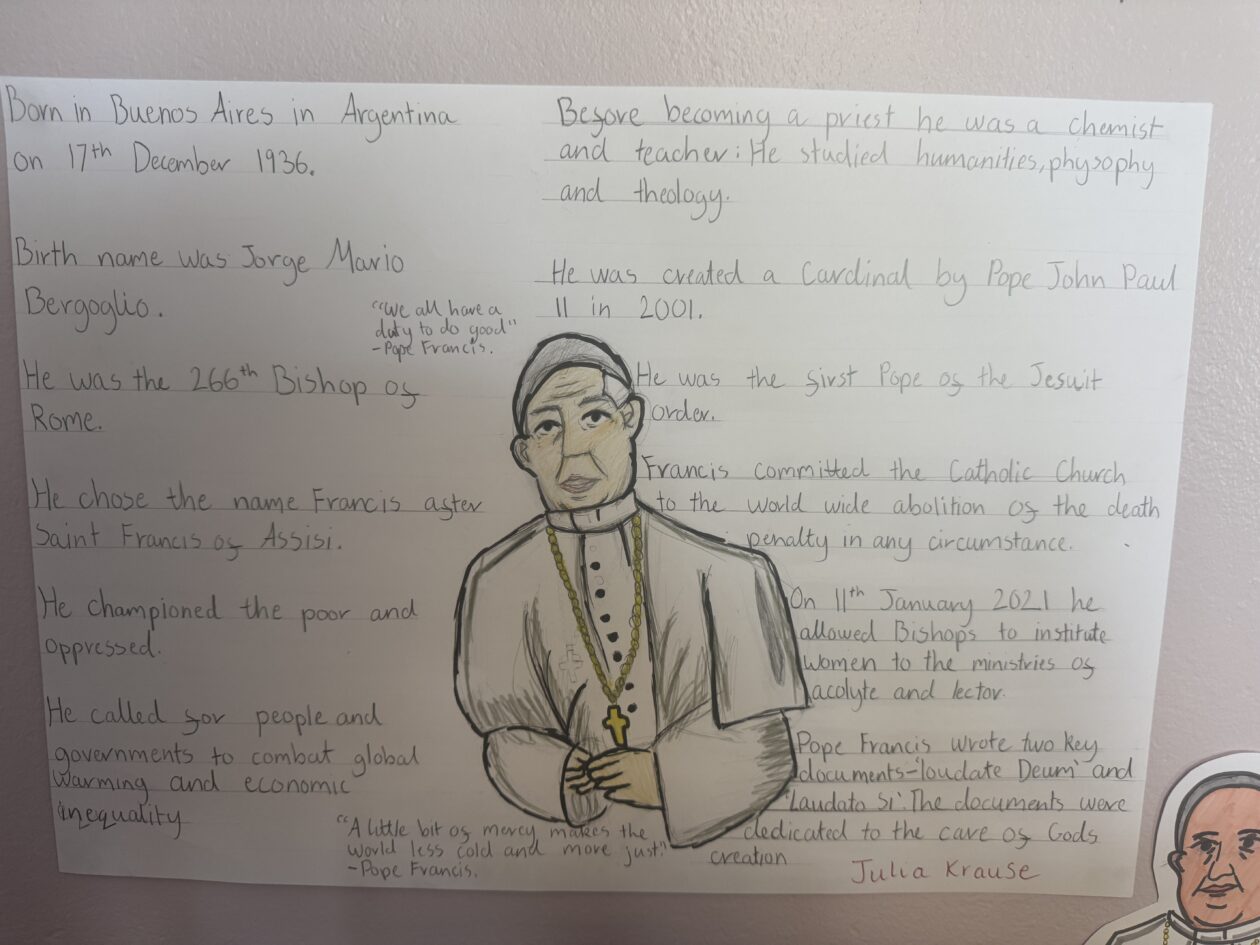 Born in Buenos Aires in Argentina
on 17th December 1936.
Birth name was Jorge Mario
Bergoglio.
"We all have a
duty to do good"
-Pope Francis.
He was the 266th Bishop of
Rome.
He chose the name Francis after
Saint Francis of Assisi.
He championed the poor and
oppressed.
He called for people and
governments to combat global
warming and economic
inequality
"A little bit of mercy makes the
world less cold and more just."
-Pope Francis.
Before becoming a priest he was a chemist
and teacher. He studied humanities, physophy
and theology.
He was created a Cardinal by Pope John Paul
II in 2001.
He was the first Pope of the Jesuit
order.
Francis committed the Catholic Church
to the world wide abolition of the death
penalty in any circumstance.
On 11th January 2021 he
allowed Bishops to institute
women to the ministries of
acolyte and lector.
Pope Francis wrote two key
documents-'loudate Deum' and
'Laudato Si'. The documents were
dedicated to the care of Gods
creation
Julia Krause